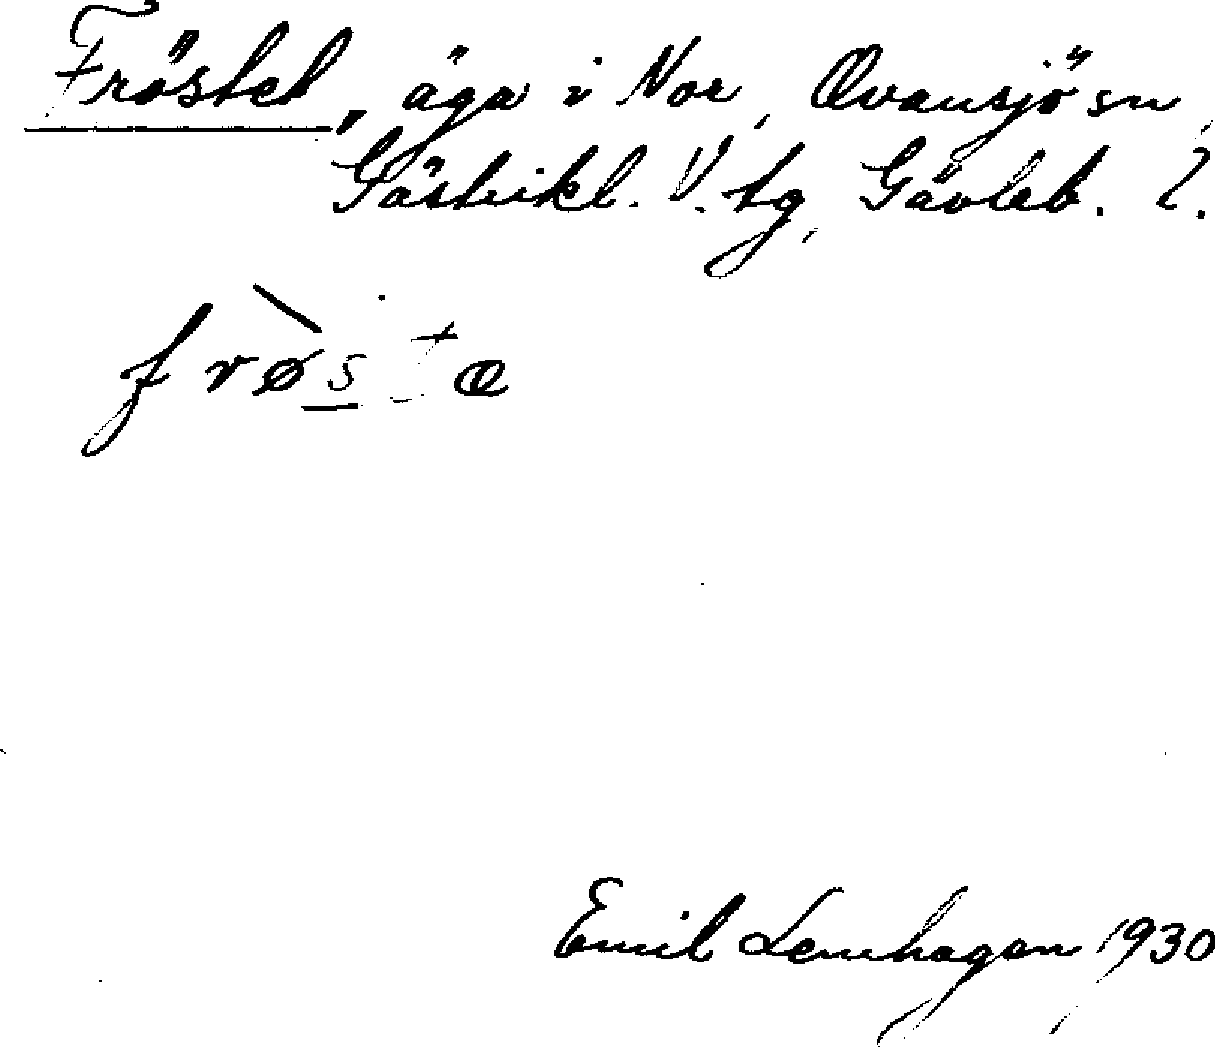 Fröstet, äga i Nor, Ovansjö sn,
Gästrikl. V. tg, Gävleb. l.
frø̀s̲tæ
Emil Lenhagen 1930